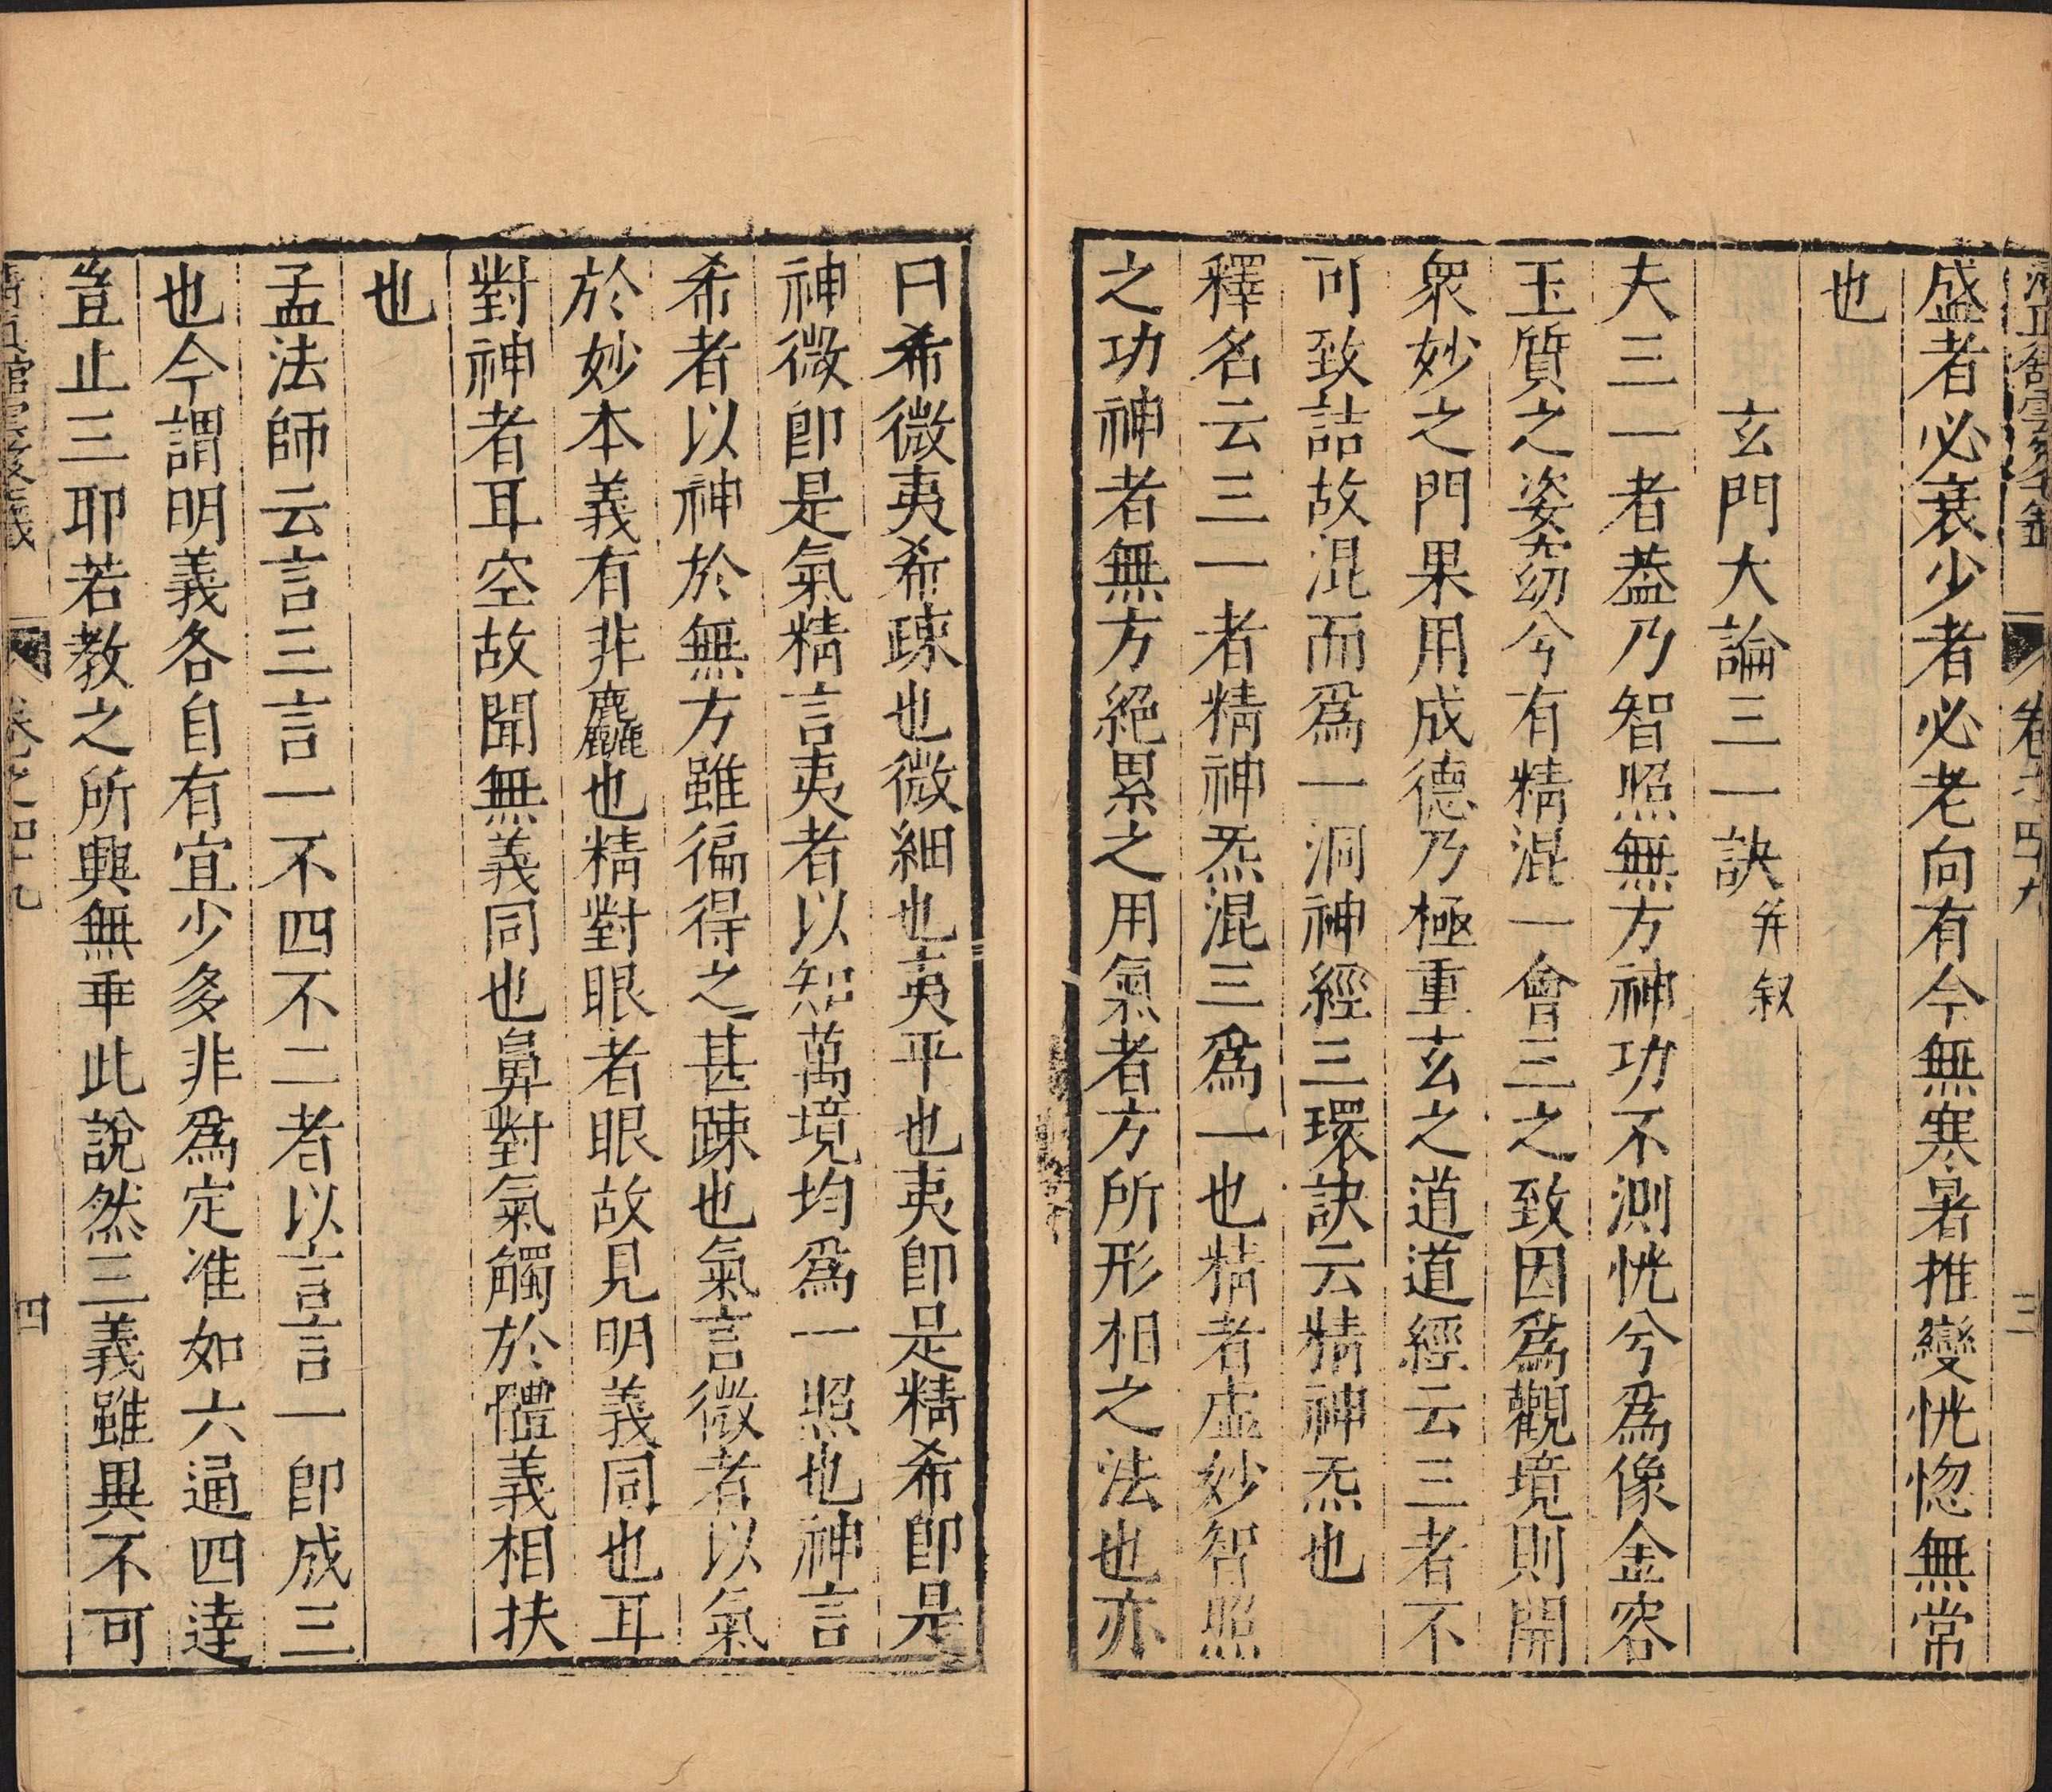 盛者必衰少者必老向有今無寒暑推變恍惚無常
也
玄門大論三一訣并叙
夫三一者葢乃智照無方神功不測恍兮爲像金容
玉質之姿窈兮有精混一會三之致因爲觀境則開
衆妙之門果用成德乃極重玄之道道經云三者不
可致詰故混而爲一洞神經三環訣云精神炁也
釋名云三一者精神炁混三爲一也精者虛妙智照
之功神者無方絕累之用氣者方所形相之法也亦
曰希微夷希疎也微細也夷平也夷卽是精希卽是
神微卽是氣精言夷者以知萬境均爲一照也神言
希者以神於無方雖徧得之甚踈也氣言微者以氣
於妙本義有非麤也精對眼者眼故見明義同也耳
對神者耳空故聞無義同也鼻對氣觸於體義相扶
也
孟法師云言三言一不四不二者以言言一卽成三
也今謂明義各自有宜少多非爲定准如六通四達
豈止三耶若教之所興無乖此說然三義雖異不可
卷之四十九
四